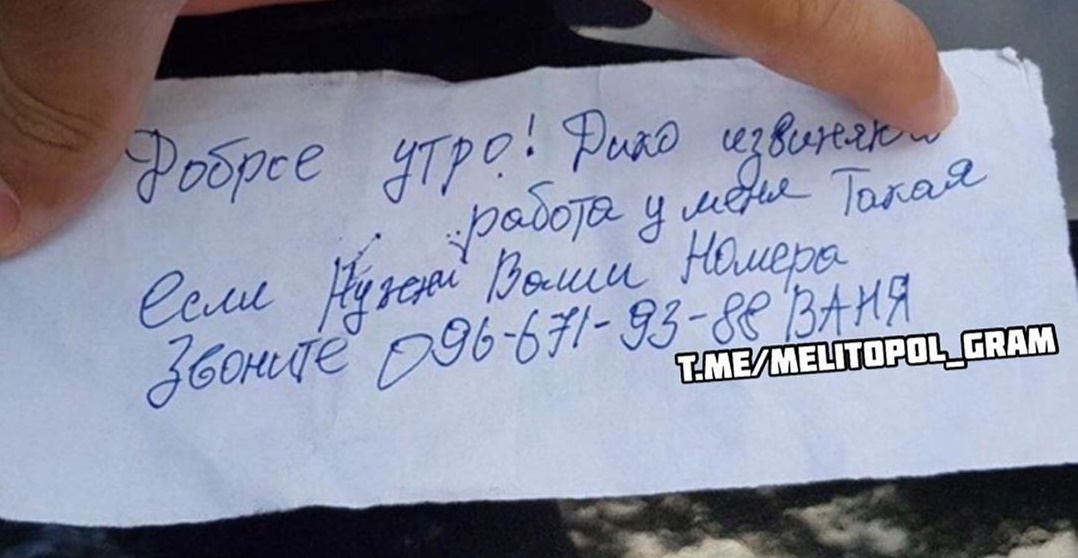 Доброе утро! Дико извиняюсь
работа у меня Такая
если Нужны Ваши Номера
Звоните 096-671-93-88 ВАНЯ
T.ME/MELITOPOL_GRAM